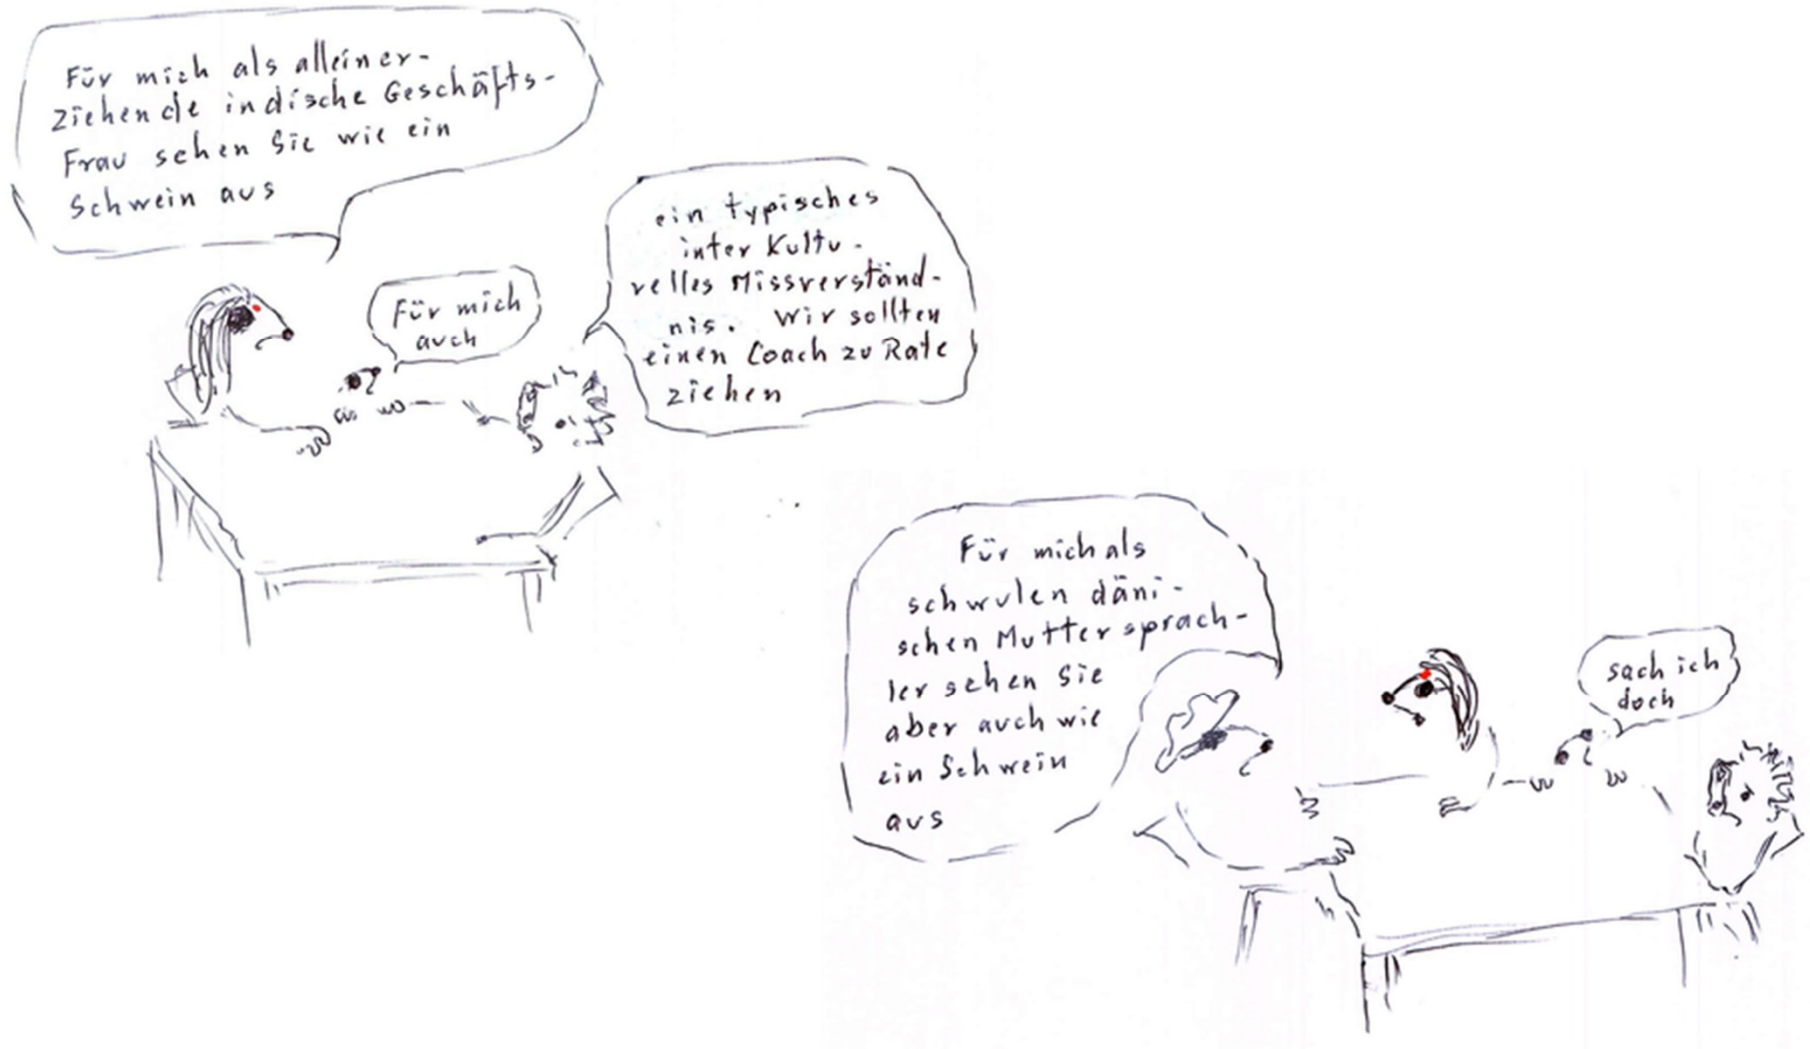 Für mich als alleiner-
ziehende indische Geschäfts-
Frau sehen Sie wie ein
Schwein aus
Für mich
auch
ein typisches
inter Kultu-
relles Missverständ-
nis. Wir sollten
einen Coach zu Rate
ziehen
Für mich als
schwulen däni-
schen Muttersprach-
ler sehen Sie
aber auch wie
ein Schwein
aus
sach ich
doch